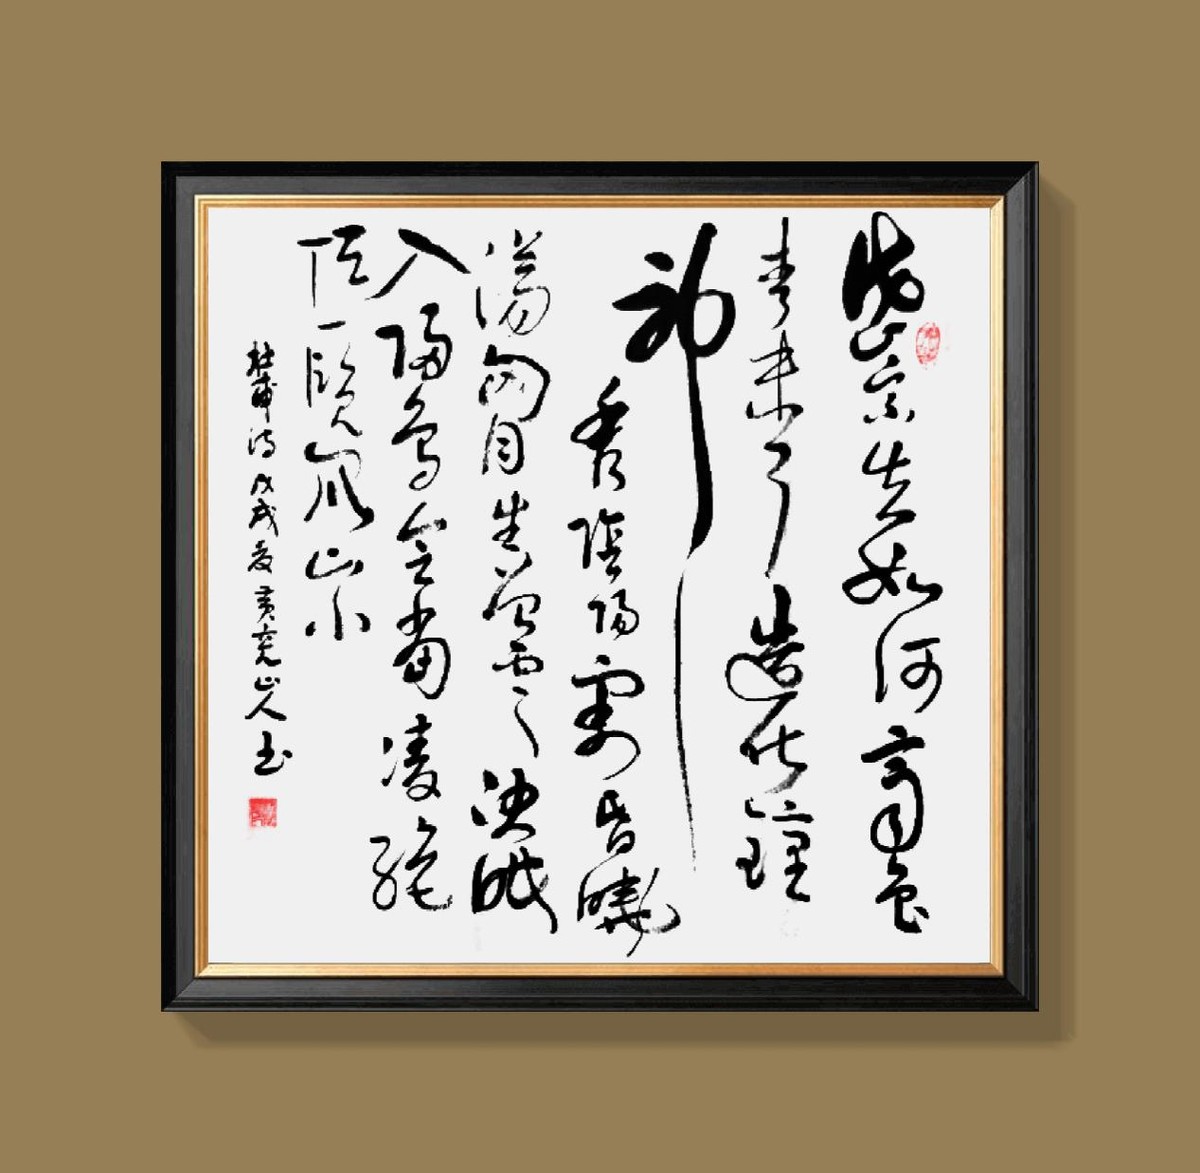 岱宗夫如何齊魯
青未了造化鍾
神
秀陰陽割昏曉
蕩胸生曾雲決眥
入歸鳥會當凌絕
頂一覽衆山小
杜甫詩戊戌夏黄山人書